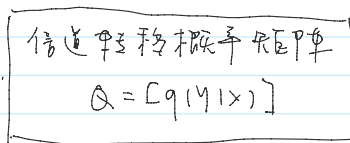 信道转移概率矩阵
Q = [q(y|x)]